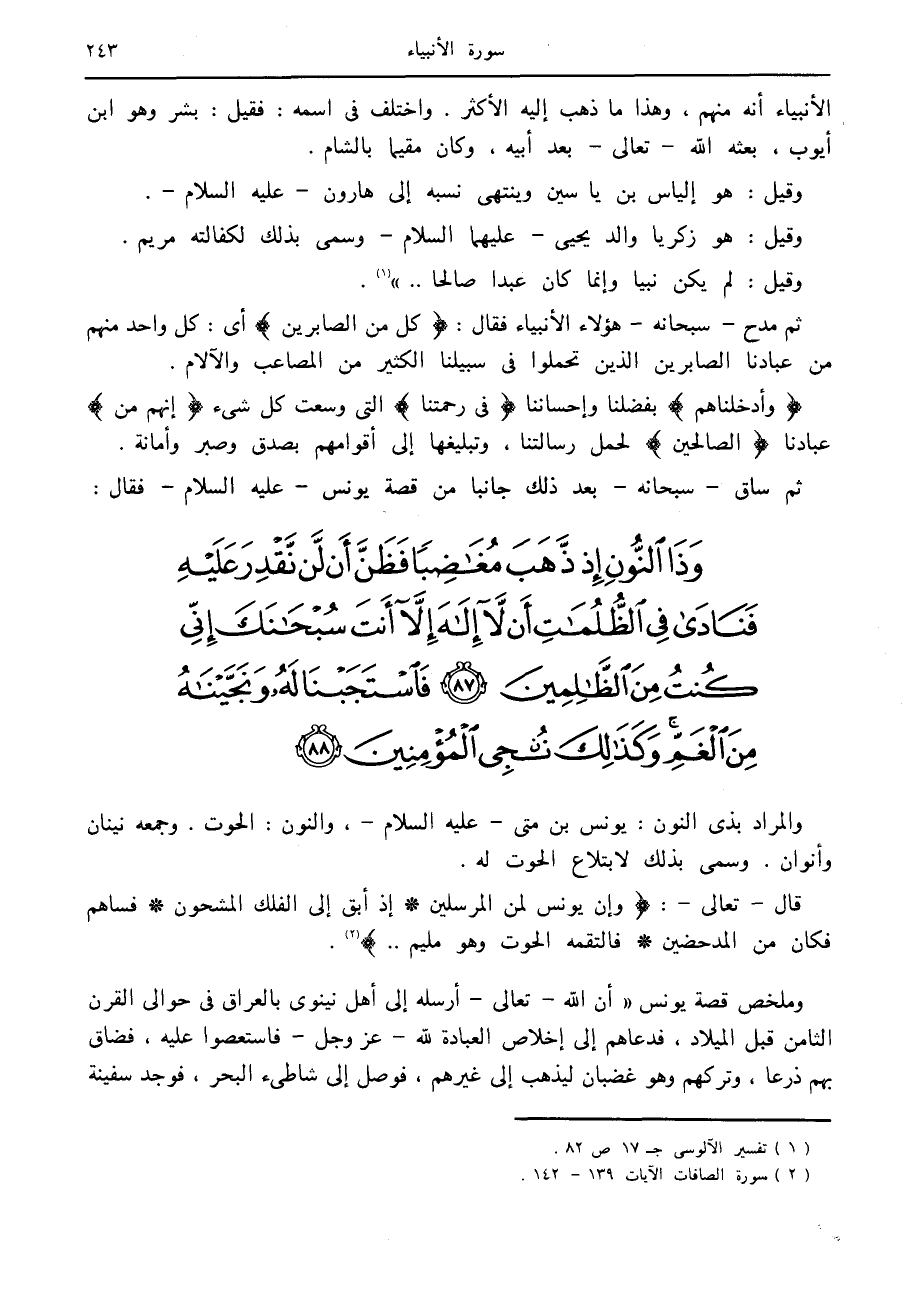 سورة الأنبياء ٢٤٣
الأنبياء أنه منهم ، وهذا ما ذهب إليه الأكثر . واختلف فى اسمه : فقيل : بشر وهو ابن
أيوب ، بعثه الله – تعالى – بعد أبيه ، وكان مقيما بالشام .
وقيل : هو إلياس بن يا سين وينتهى نسبه إلى هارون – عليه السلام – .
وقيل : هو زكريا والد يحيى – عليهما السلام – وسمى بذلك لكفالته مريم .
وقيل : لم يكن نبيا وإنما كان عبدا صالحا .. »(١) .
ثم مدح – سبحانه – هؤلاء الأنبياء فقال : ﴿ كل من الصابرين ﴾ أى : كل واحد منهم
من عبادنا الصابرين الذين تحملوا فى سبيلنا الكثير من المصاعب والآلام .
﴿ وأدخلناهم ﴾ بفضلنا وإحساننا ﴿ فى رحمتنا ﴾ التى وسعت كل شىء ﴿ إنهم من ﴾
عبادنا ﴿ الصالحين ﴾ لحمل رسالتنا ، وتبليغها إلى أقوامهم بصدق وصبر وأمانة .
ثم ساق – سبحانه – بعد ذلك جانبا من قصة يونس – عليه السلام – فقال :
وَذَا ٱلنُّونِ إِذ ذَّهَبَ مُغَـٰضِبًا فَظَنَّ أَن لَّن نَّقْدِرَ عَلَيْهِ
فَنَادَىٰ فِى ٱلظُّلُمَـٰتِ أَن لَّآ إِلَـٰهَ إِلَّآ أَنتَ سُبْحَـٰنَكَ إِنِّى
كُنتُ مِنَ ٱلظَّـٰلِمِينَ ٨٧ فَٱسْتَجَبْنَا لَهُۥ وَنَجَّيْنَـٰهُ
مِنَ ٱلْغَمِّ ۚ وَكَذَٰلِكَ نُـۨجِى ٱلْمُؤْمِنِينَ ٨٨
والمراد بذى النون : يونس بن متى – عليه السلام – ، والنون : الحوت . وجمعه نينان
وأنوان . وسمى بذلك لابتلاع الحوت له .
قال – تعالى – : ﴿ وإن يونس لمن المرسلين * إذ أبق إلى الفلك المشحون * فساهم
فكان من المدحضين * فالتقمه الحوت وهو مليم .. ﴾(٢) .
وملخص قصة يونس « أن الله – تعالى – أرسله إلى أهل نينوى بالعراق فى حوالى القرن
الثامن قبل الميلاد ، فدعاهم إلى إخلاص العبادة لله – عز وجل – فاستعصوا عليه ، فضاق
بهم ذرعا ، وتركهم وهو غضبان ليذهب إلى غيرهم ، فوصل إلى شاطىء البحر ، فوجد سفينة
( ١ ) تفسير الآلوسى جـ ١٧ ص ٨٢ .
( ٢ ) سورة الصافات الآيات ١٣٩ – ١٤٢ .